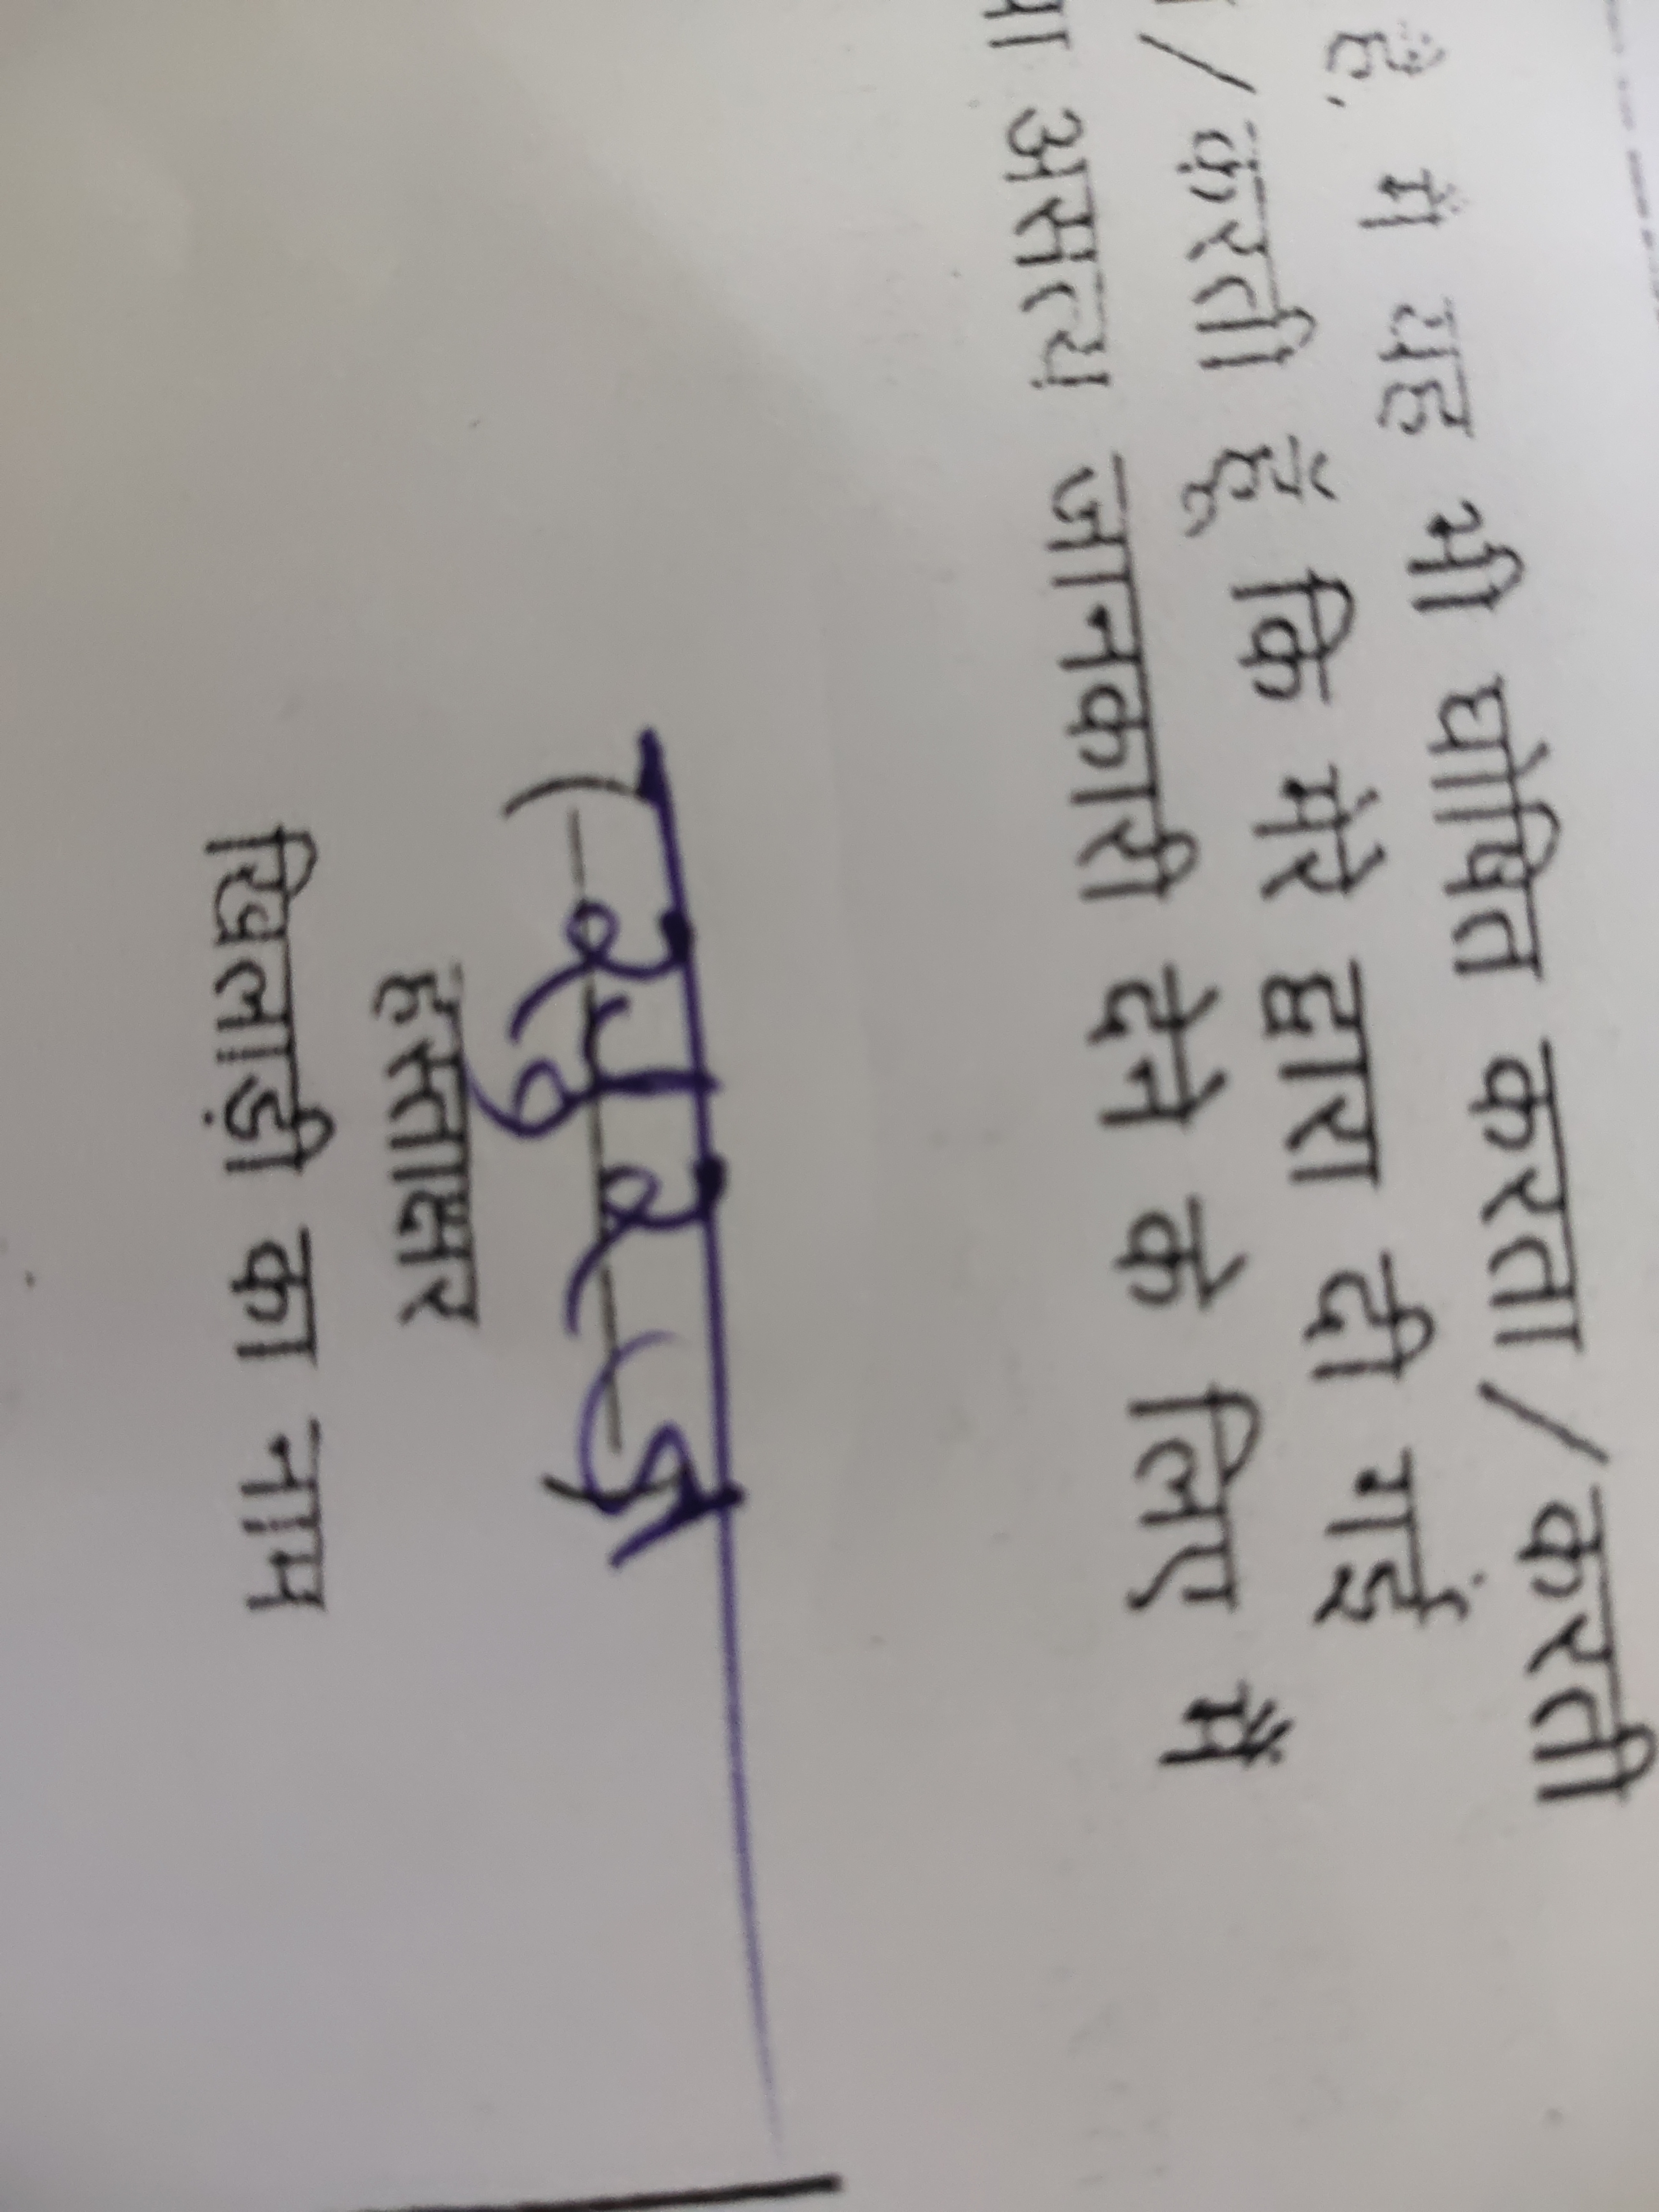 है, मैं यह भी घोषित करता/करती
/करती हूँ कि मेरे द्वारा दी गई
असत्य जानकारी देने के लिए मैं
सुरज
हस्ताक्षर
खिलाड़ी का नाम